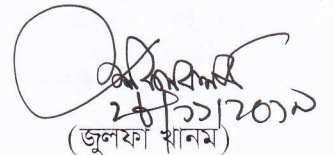 ২৮/১১/২০১৯
(জুলফা খানম)